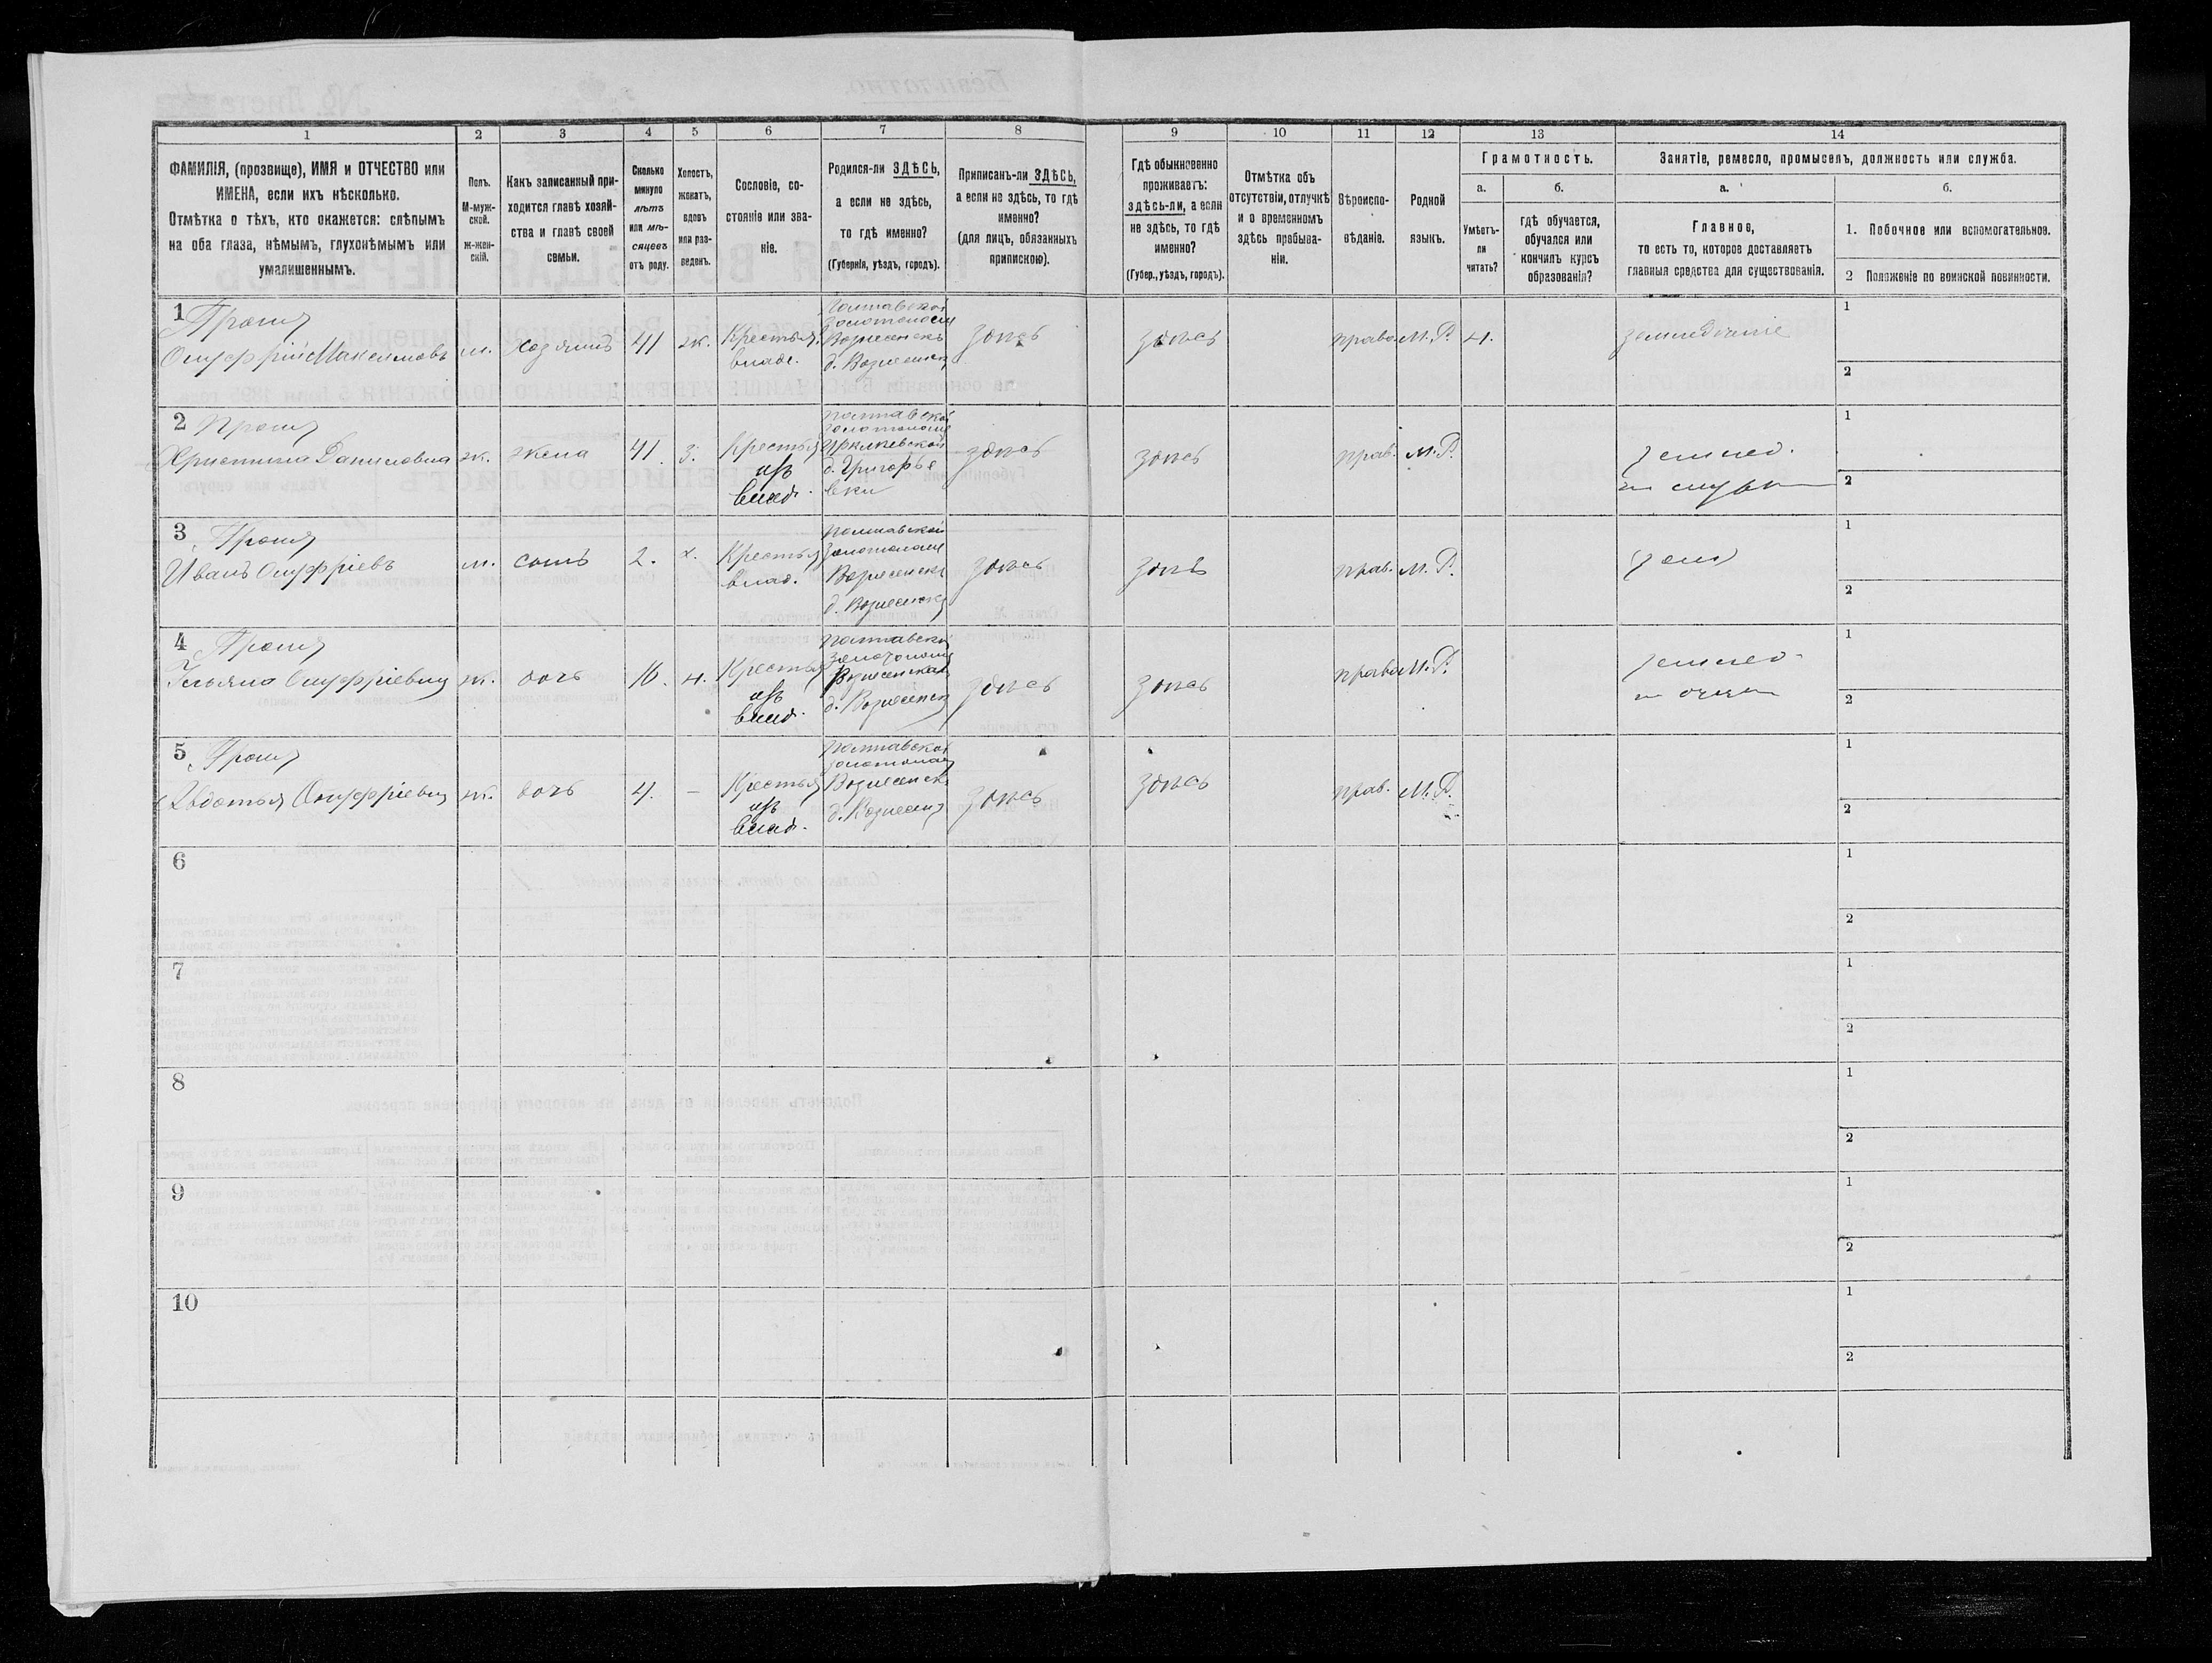 1
2
3
4
5
6
7
8
ФАМИЛІЯ, (прозвище), ИМЯ и ОТЧЕСТВО или
ИМЕНА, если ихъ нѣсколько.
Отмѣтка о тѣхъ, кто окажется: слѣпымъ
на оба глаза, нѣмымъ, глухонѣмымъ или
умалишеннымъ.
Полъ.
М-муж-
ской.
Ж-жен-
скій.
Какъ записанный при-
ходится главѣ хозяй-
ства и главѣ своей
семьи.
Сколько
минуло
лѣтъ
или мѣ-
сяцевъ
отъ роду.
Холостъ,
женатъ,
вдовъ
или раз-
веденъ.
Сословіе, со-
стояніе или зва-
ніе.
Родился-ли ЗДѢСЬ,
а если не здѣсь,
то гдѣ именно?
(Губернія, уѣздъ, городъ).
Приписанъ-ли ЗДѢСЬ,
а если не здѣсь, то гдѣ
именно?
(для лицъ, обязанныхъ
припискою).
9
10
11
12
13
14
Гдѣ обыкновенно
проживаетъ:
здѣсь-ли, а если
не здѣсь, то гдѣ
именно?
(Губер., уѣздъ, городъ).
Отмѣтка объ
отсутствіи, отлучкѣ
и о временномъ
здѣсь пребыва-
ніи.
Вѣроиспо-
вѣданіе.
Родной
языкъ.
Грамотность.
а.
б.
Умѣетъ-
ли
читать?
гдѣ обучается,
обучался или
кончилъ курсъ
образованія?
Занятіе, ремесло, промыселъ, должность или служба.
а.
б.
Главное,
то есть то, которое доставляетъ
главныя средства для существованія.
1. Побочное или вспомогательное.
2 Положеніе по воинской повинности.
1
Онуфрій Максимовъ
м.
хозяинъ
41
ж.
Крестья.
владе.
Полтавской
д. Вознесенск
здѣсь
здѣсь
право
М.Р.
н.
земледѣліе
1
2
2
Христина Даниловна
ж.
жена
41
з.
Крестья
изъ
влад.
Полтавской
Ирклѣевской
д. Григорье
вки
здѣсь
здѣсь
прав.
М.Р.
землед.
1
2
3
Иванъ Онуфріевъ
м.
сынъ
2.
х.
Крестья
влад.
Полтавской
Вознесенск
д. Вознесенск
здѣсь
здѣсь
прав.
М.Р.
1
2
4
Ульяна Онуфріевна
ж.
дочь
16.
н.
Крестья
изъ
влад.
Полтавской
Вознесенской
д. Вознесенск
здѣсь
здѣсь
право
М.Р.
землед.
1
2
5
Евдотья Онуфріевна
ж.
дочь
4.
—
Крестья
изъ
влад.
Полтавской
Вознесенск
здѣсь
здѣсь
прав.
М.Р.
1
2
6
1
2
7
1
2
8
1
2
9
1
2
10
1
2